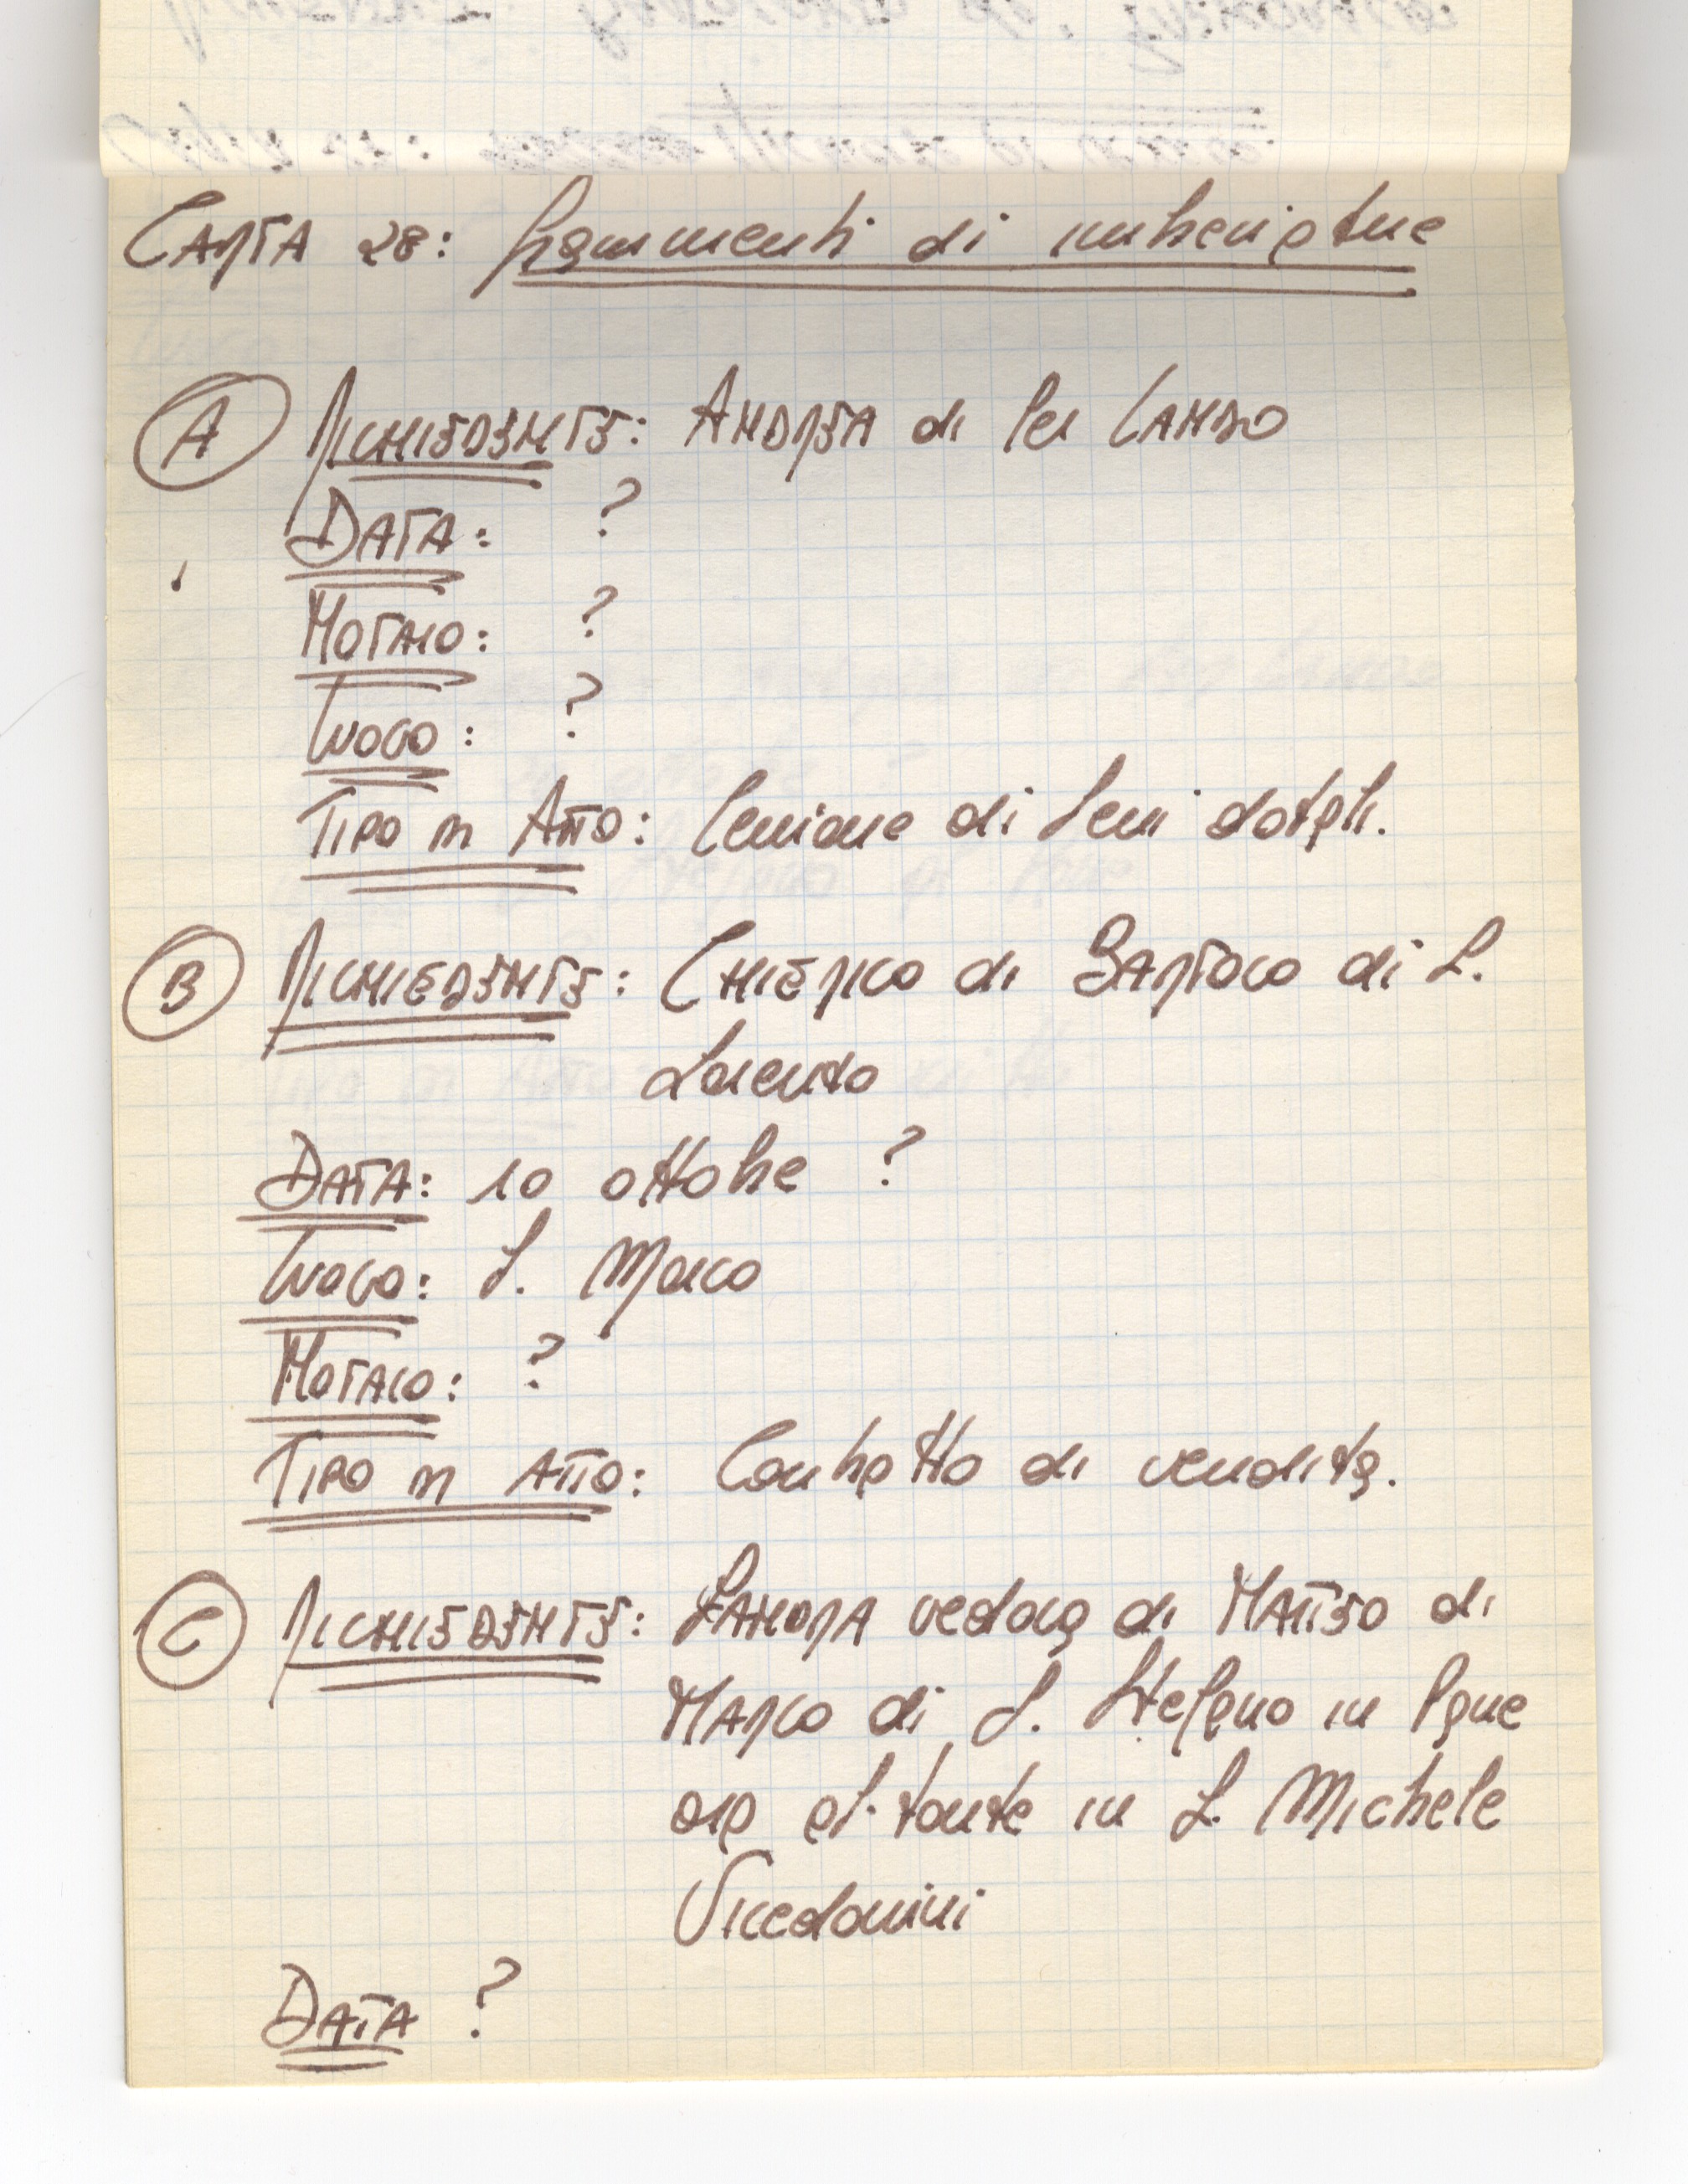 CARTA 28: frammenti di imbreviature
A RICHIEDENTE: ANDREA di Ser LANDO
DATA: ?
NOTAIO: ?
LUOGO: ?
TIPO DI ATTO: Cessione di beni dotali.
B RICHIEDENTE: CHIERICO di BARTOLO di S.
Lorenzo
DATA: 10 ottobre ?
LUOGO: S. Marco
NOTAIO: ?
TIPO DI ATTO: Contratto di vendita.
C RICHIEDENTE: SANDRA vedova di MATTEO di
MARCO di S. Stefano in Pane
ora abitante in S. Michele
Vicedomini
DATA ?